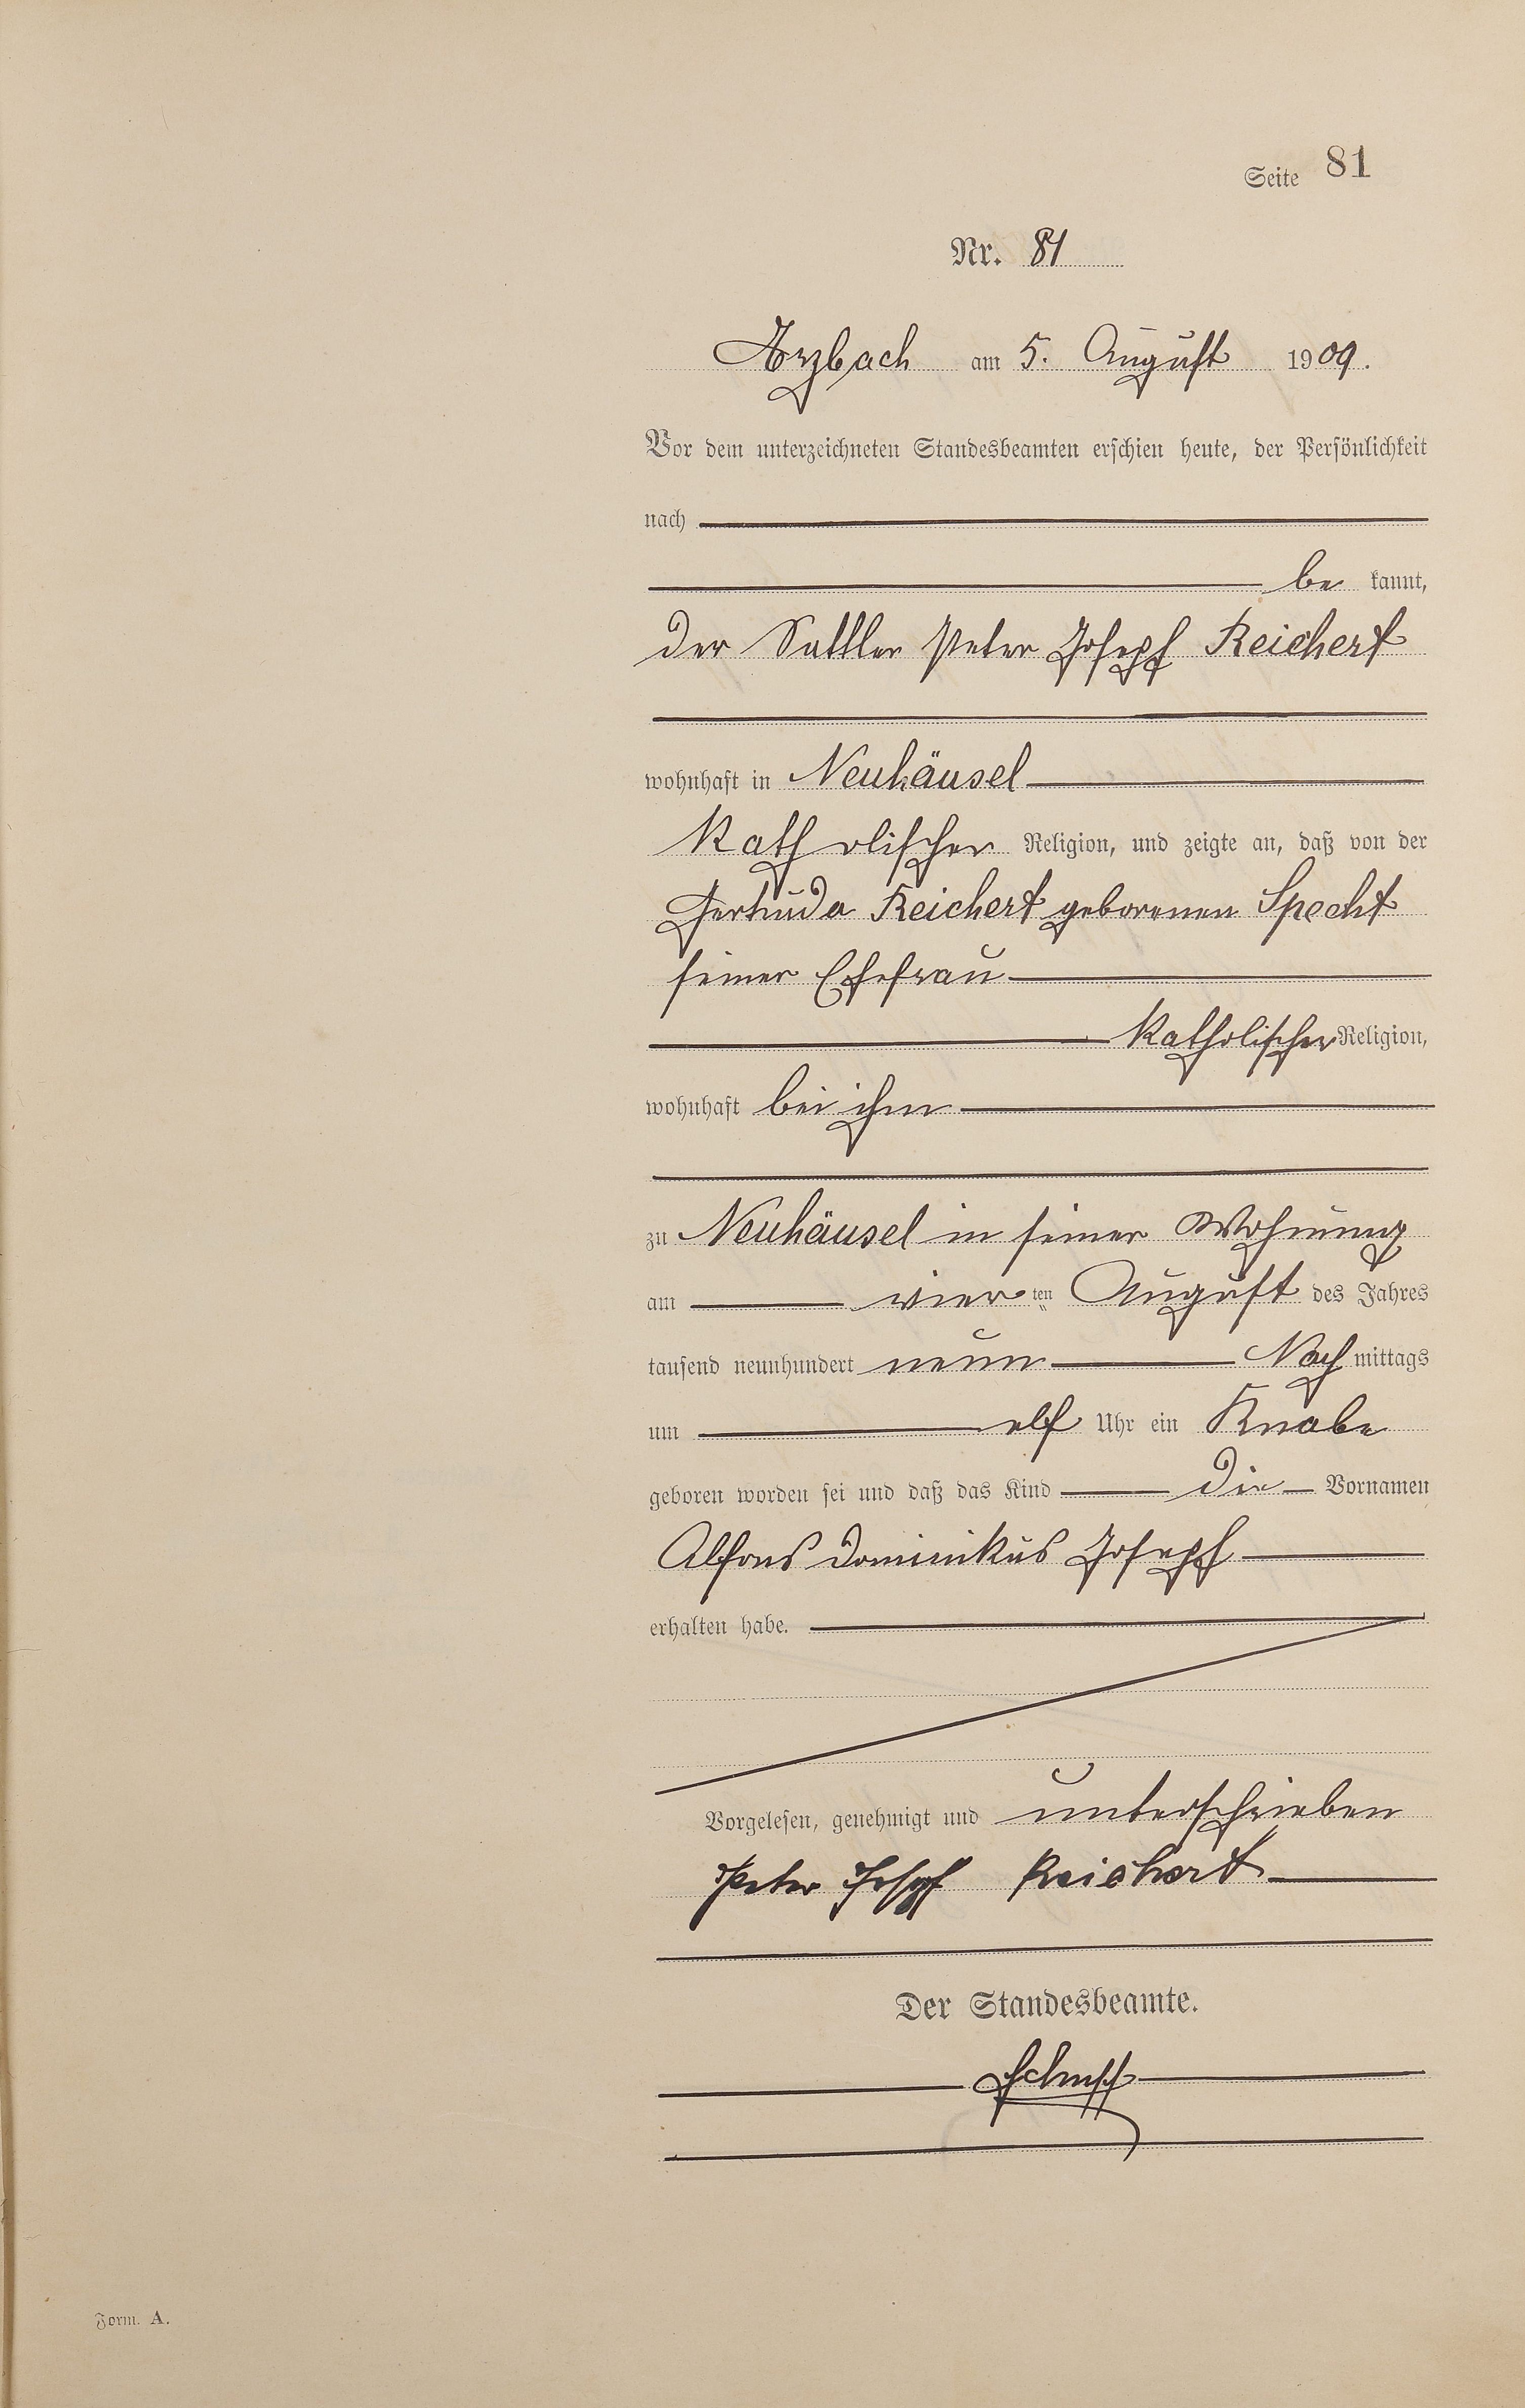 Seite 81
Nr. 81
Arzbach am 5. August 1909.
Vor dem unterzeichneten Standesbeamten erschien heute, der Persönlichkeit
nach
be kannt,
der Sattler Peter Joseph Reichert
wohnhaft in Neuhäusel
katholischer Religion, und zeigte an, daß von der
Gertruda Reichert geborenen Specht
seiner Ehefrau
katholischer Religion,
wohnhaft bei ihm
zu Neuhäusel in seiner Wohnung
am vier ten August des Jahres
tausend neunhundert neun Nach mittags
um elf Uhr ein Knabe
geboren worden sei und daß das Kind die Vornamen
Alfons Dominikus Joseph
erhalten habe.
Vorgelesen, genehmigt und unterschrieben
Peter Joseph Reichert
Der Standesbeamte.
Form. A.